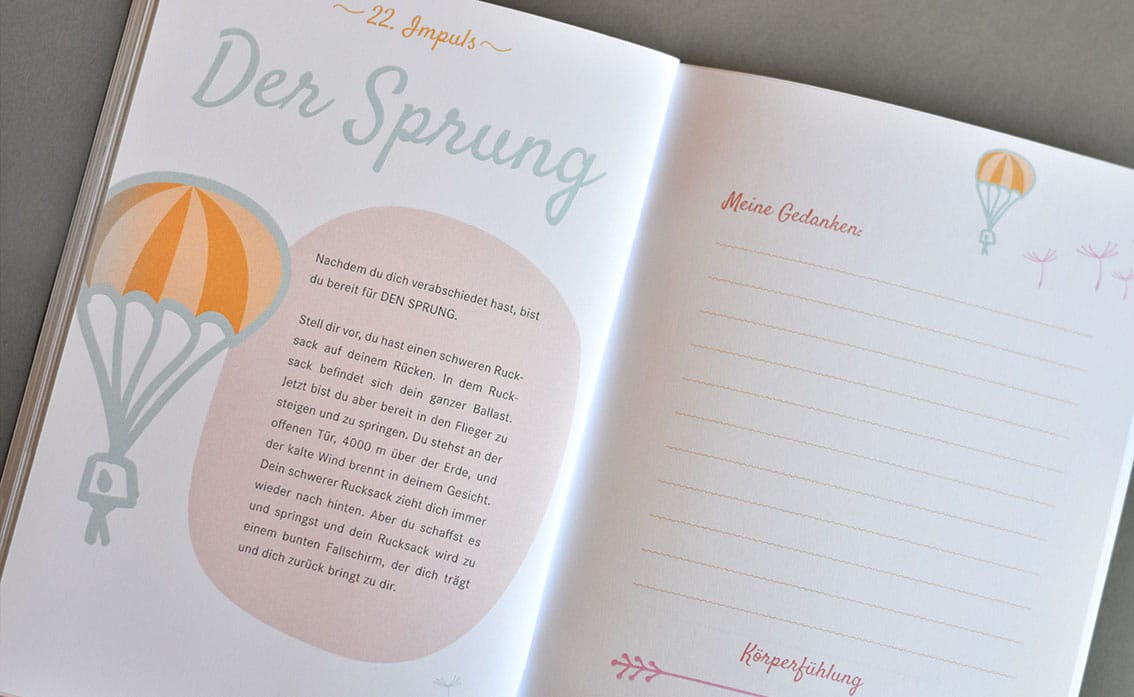 ~ 22. Impuls ~
Der Sprung
Nachdem du dich verabschiedet hast, bist
du bereit für DEN SPRUNG.
Stell dir vor, du hast einen schweren Ruck-
sack auf deinem Rücken. In dem Ruck-
sack befindet sich dein ganzer Ballast.
Jetzt bist du aber bereit in den Flieger zu
steigen und zu springen. Du stehst an der
offenen Tür, 4000 m über der Erde, und
der kalte Wind brennt in deinem Gesicht.
Dein schwerer Rucksack zieht dich immer
wieder nach hinten. Aber du schaffst es
und springst und dein Rucksack wird zu
einem bunten Fallschirm, der dich trägt
und dich zurück bringt zu dir.
Meine Gedanken:
Körperfühlung